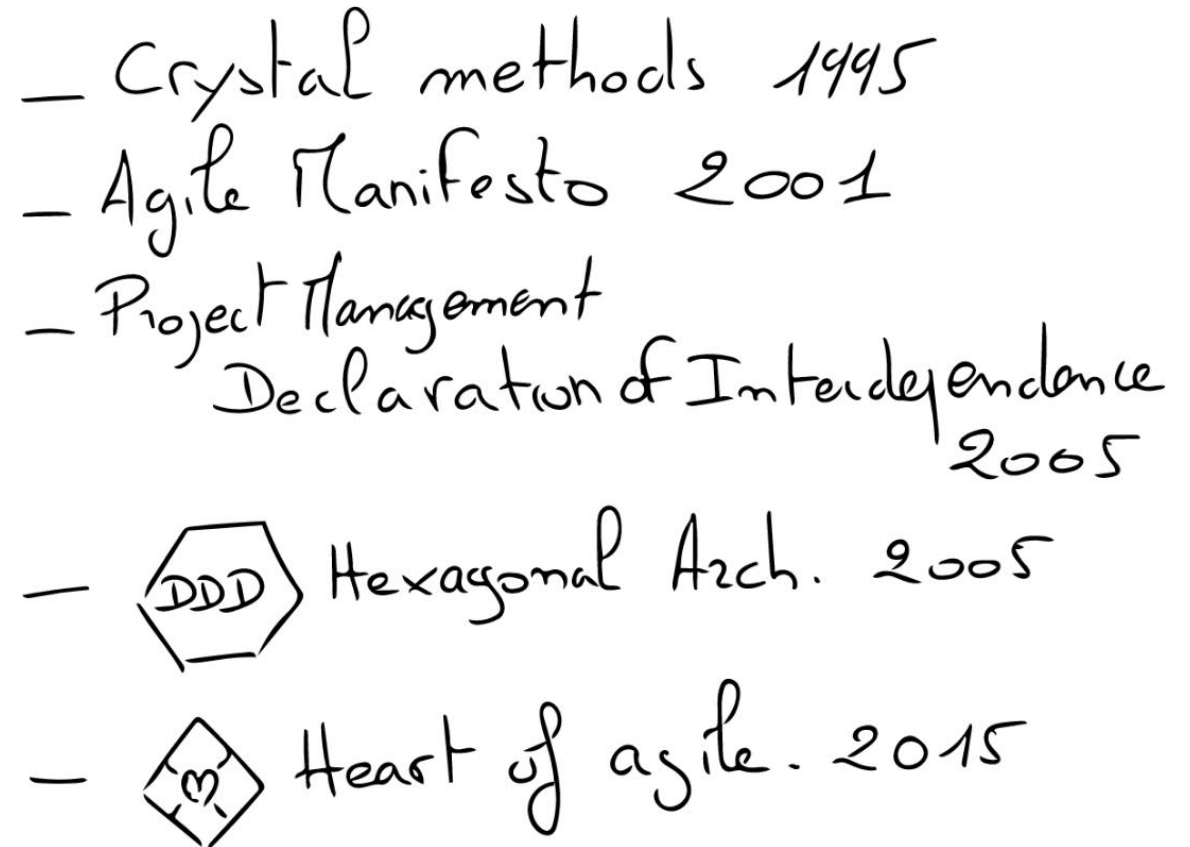 - Crystal methods 1995
- Agile Manifesto 2001
- Project Management
Declaration of Interdependence
2005
- DDD Hexagonal Arch. 2005
- Heart of agile. 2015